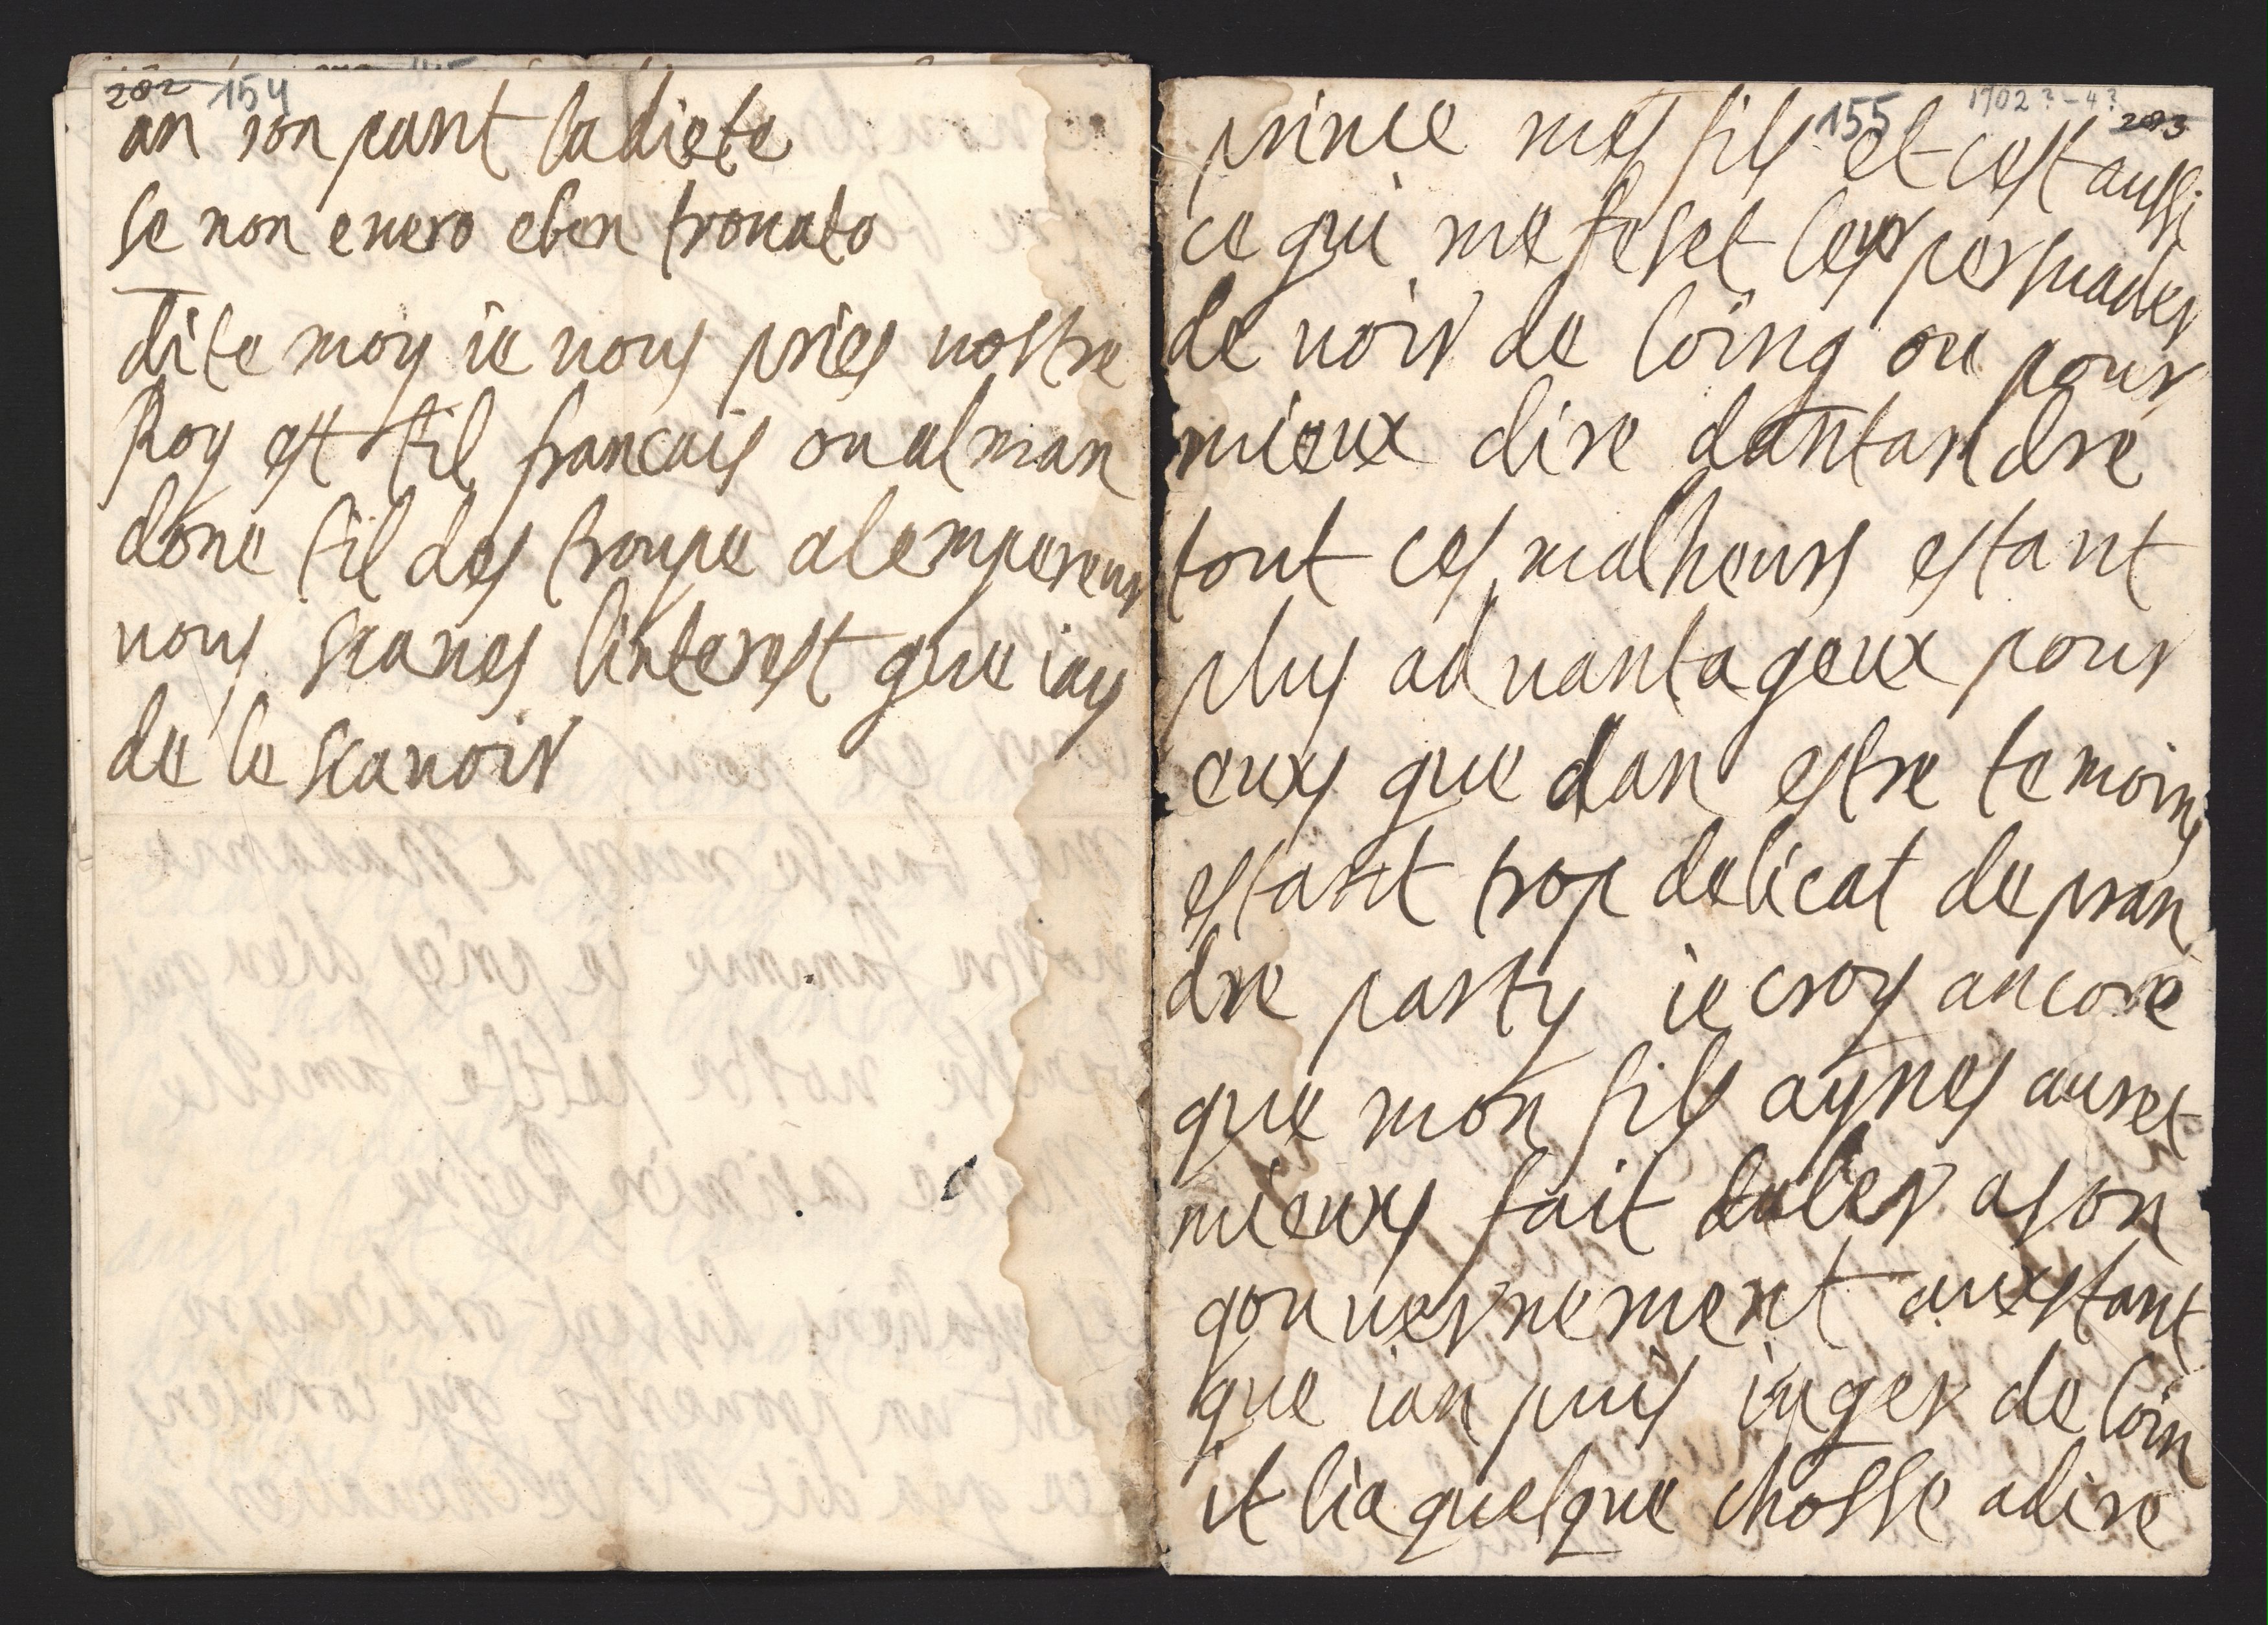 202 154
an ron pant la diete
se non e uero e ben trouato
dite moy ie uous pries uostre
Roy est til francais ou alman
done til des troupe a lempereur
uous scaues linterest que iay
de le scauoir
155 1702?-4? 203
prince mes fils et cest aussi
ce qui me feset leur persuader
de uoir de loing ou pour
mieux dire dantandre
tout ces malheurs estant
plus aduantageux pour
euxs que dan estre temoins
estant trop delicat de pran
dre party ie croy ancore
que mon fils aynes auret
mieuxs fait daler a son
gouuernement auxstant
que ian puis iuger de loin
it lia quelque chosse a dire